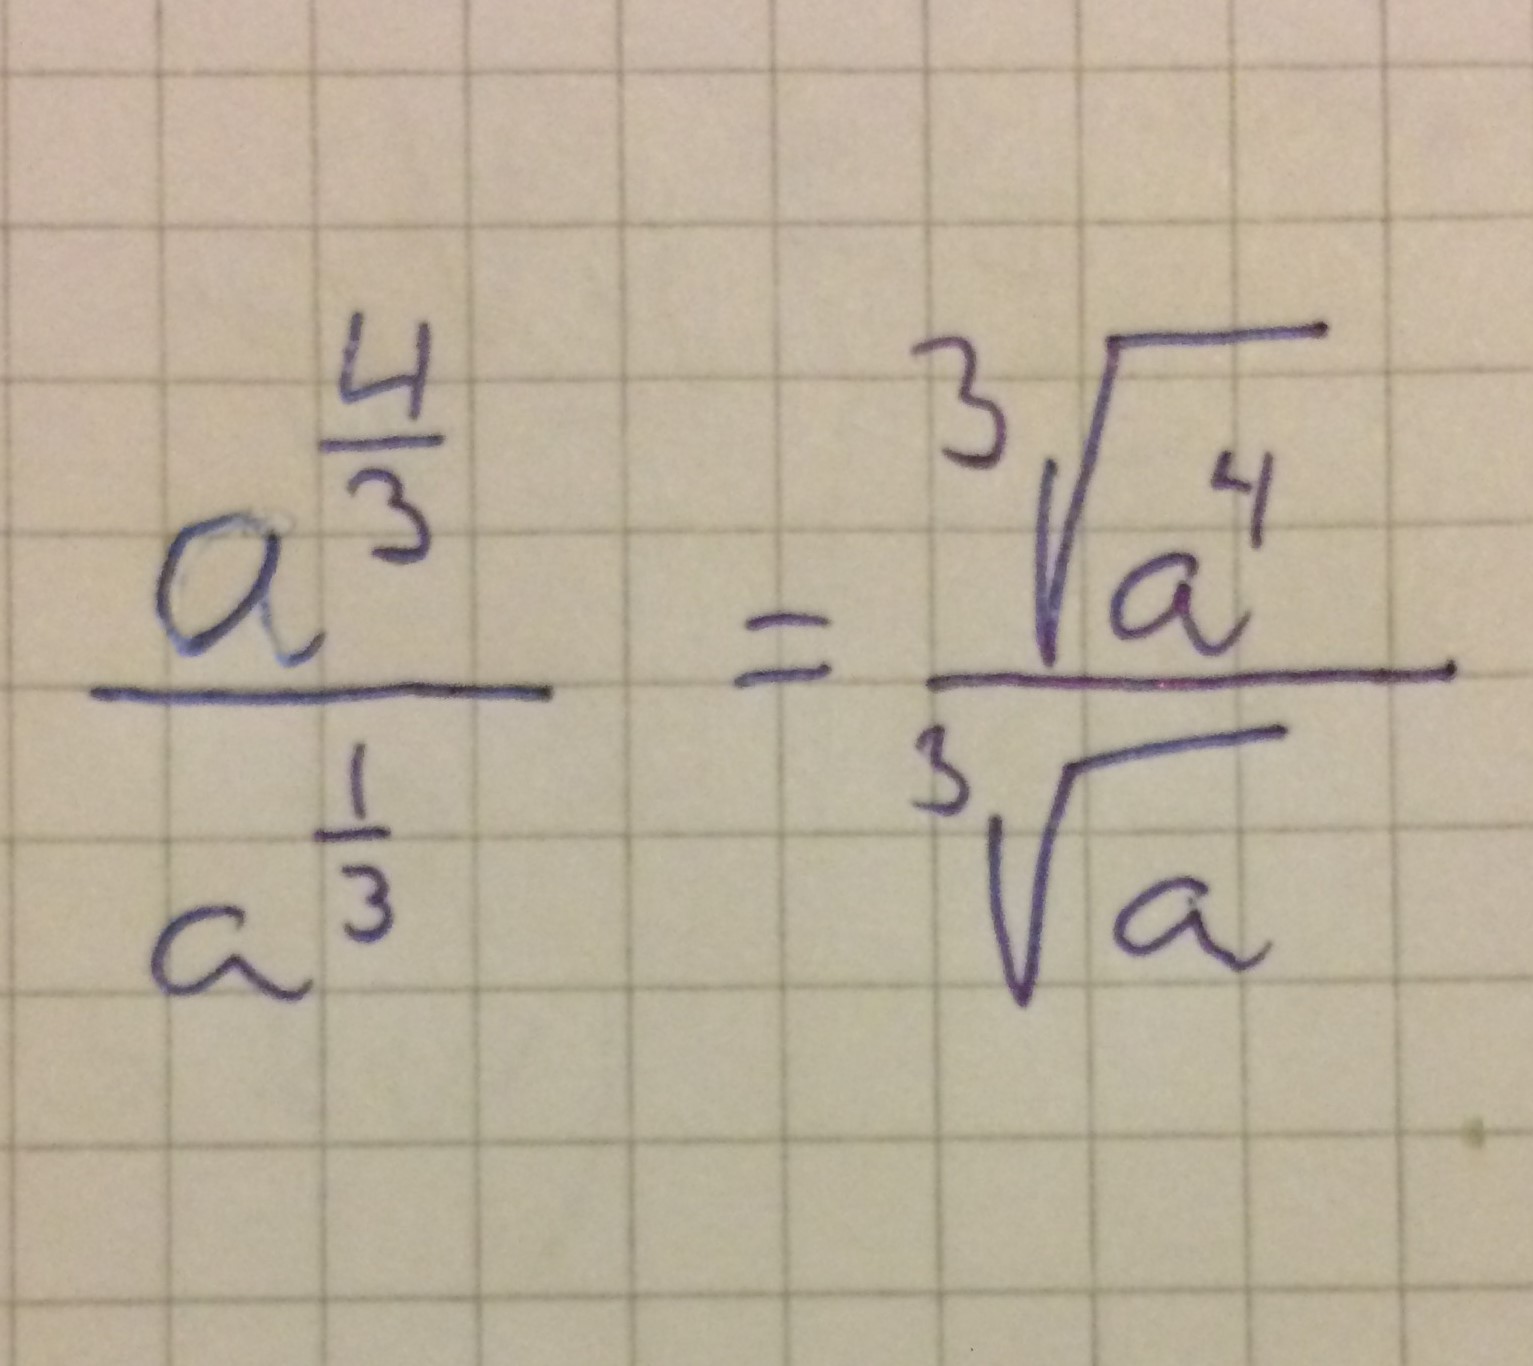 a^(4/3) / a^(1/3) = ∛(a^4) / ∛a